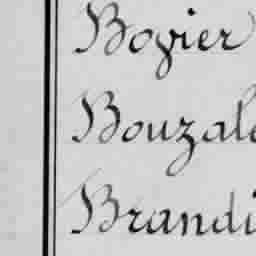 Bovier
Bouzal
Brandi